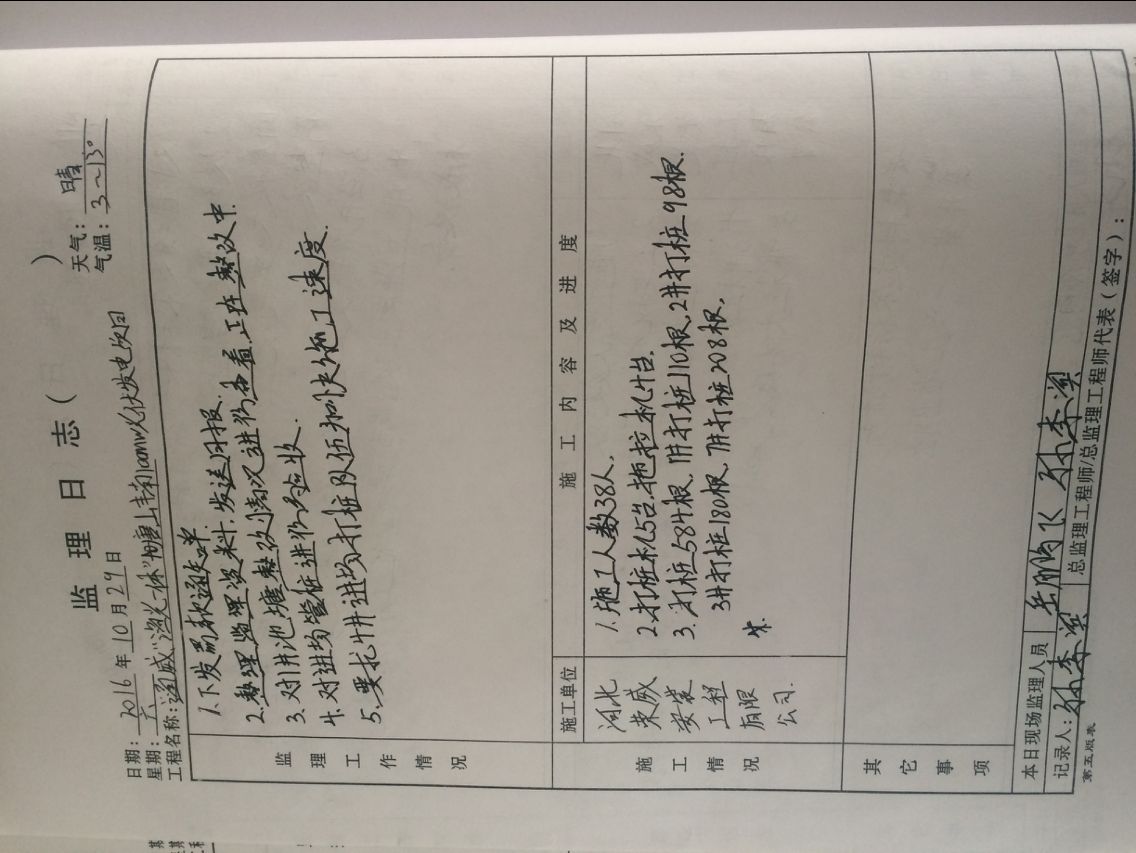 监 理 日 志 （ ）
日期：2016 年 10 月 29 日 天气：晴
星期：六 气温：3～13°
工程名称：通威"渔光一体"唐山丰南100MW光伏发电项目
监理工作情况
1. 下发罚款通知单.
2. 整理监理资料,发送月报.
3. 对1#池塘整改情况进行查看,正在整改中.
4. 对进场管桩进行验收.
5. 要求4#进场打桩队伍加快施工速度.
施工单位 施 工 内 容 及 进 度
施工情况
河北荣威安装工程有限公司.
1. 施工人数38人,
2. 打桩机5台,拖拉机4台.
3. 打桩584根, 1#打桩110根,2#打桩98根.
3#打桩180根, 7#打桩208根,
其它事项
本日现场监理人员
记录人： 总监理工程师/总监理工程师代表（签字）：
第五版表